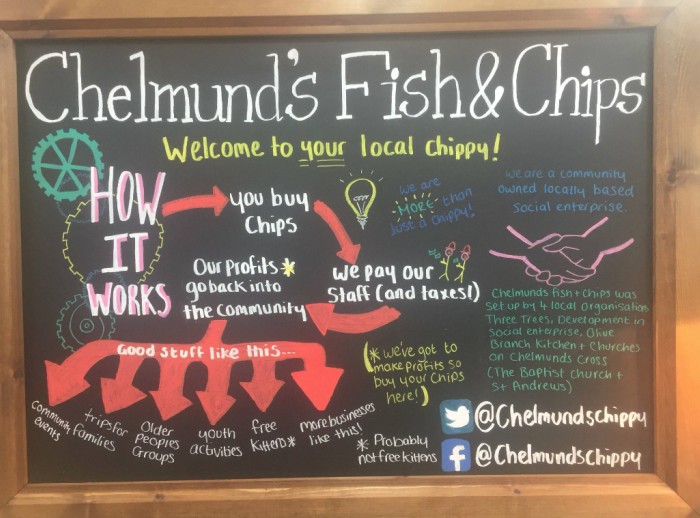 Chelmund's Fish & Chips
Welcome to your local chippy!
HOW
IT
WORKS
you buy
Chips
we pay our
Staff (and taxes!)
Our Profits*
go back into
the community
Good stuff like this...
community
events
trips for
families
Older
Peoples
Groups
youth
activities
free
kittens*
more businesses
like this!
* Probably
not free kittens
(* we've got to
make profits so
buy your chips
here!)
we are
MORE than
just a chippy!
we are a community
owned locally based
Social enterprise.
Chelmunds fish + chips was
set up by 4 local organisations
Three Trees, Development in
Social enterprise, Olive
Branch Kitchen + Churches
on Chelmunds Cross
(The Baptist church +
St Andrews)
@Chelmundschippy
@Chelmundschippy